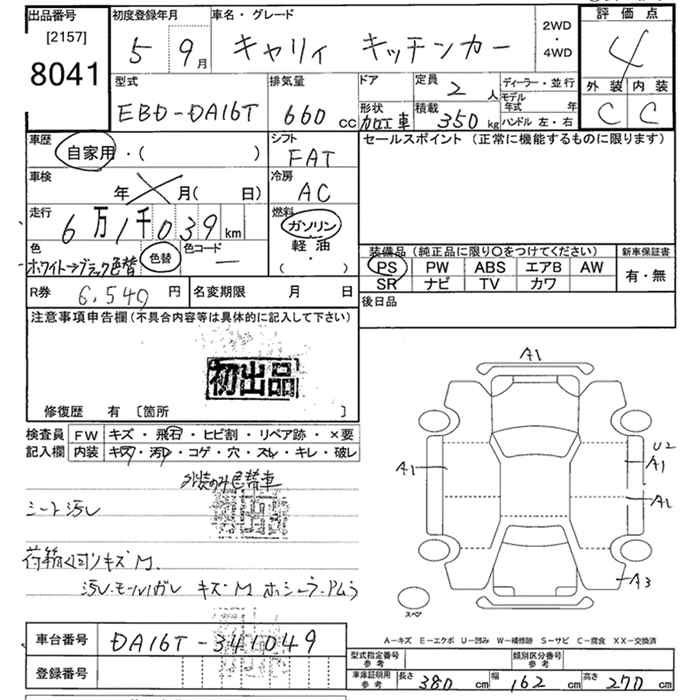 出品番号
[2157]
8041
初度登録年月
5 9月
車名・グレード
キャリィ キッチンカー
2WD
・
4WD
評価点
4
外装 内装
C C
型式
EBD-DA16T
排気量
660 cc
ドア
形状
加工車
定員
2 人
積載
350 kg
ディーラー・並行
モデル
年式 年
ハンドル 左・右
車歴
自家用・( )
シフト
FAT
セールスポイント (正常に機能するものに限ります)
車検
年 月( 日)
冷房
AC
走行
6万1千039km
燃料
ガソリン
軽油
( ・ )
色
ホワイト→ブラック色替
色替
色コード
—
装備品 (純正品に限り○をつけてください)
PS PW ABS エアB AW
SR ナビ TV カワ
新車保証書
有・無
R券 6,540 円
名変期限 月 日
後日品
注意事項申告欄(不具合内容等は具体的に記入して下さい)
初出品
修復歴 有 [箇所 ]
検査員
記入欄
FW キズ・飛石・ヒビ割・リペア跡・×要
内装 キズ・汚レ・コゲ・穴・スレ・キレ・破レ
外装のみ色替車
シート汚レ
キズM
A1
A1
U2
A1
A1
A3
スペア
A-キズ E-エクボ U-凹み W-補修跡 S-サビ C-腐食 XX-交換済
車台番号 DA16T-341049
登録番号
型式指定番号
参考
類別区分番号
参考
車庫証明用
参考
長さ 380 cm 幅 162 cm 高さ 270 cm